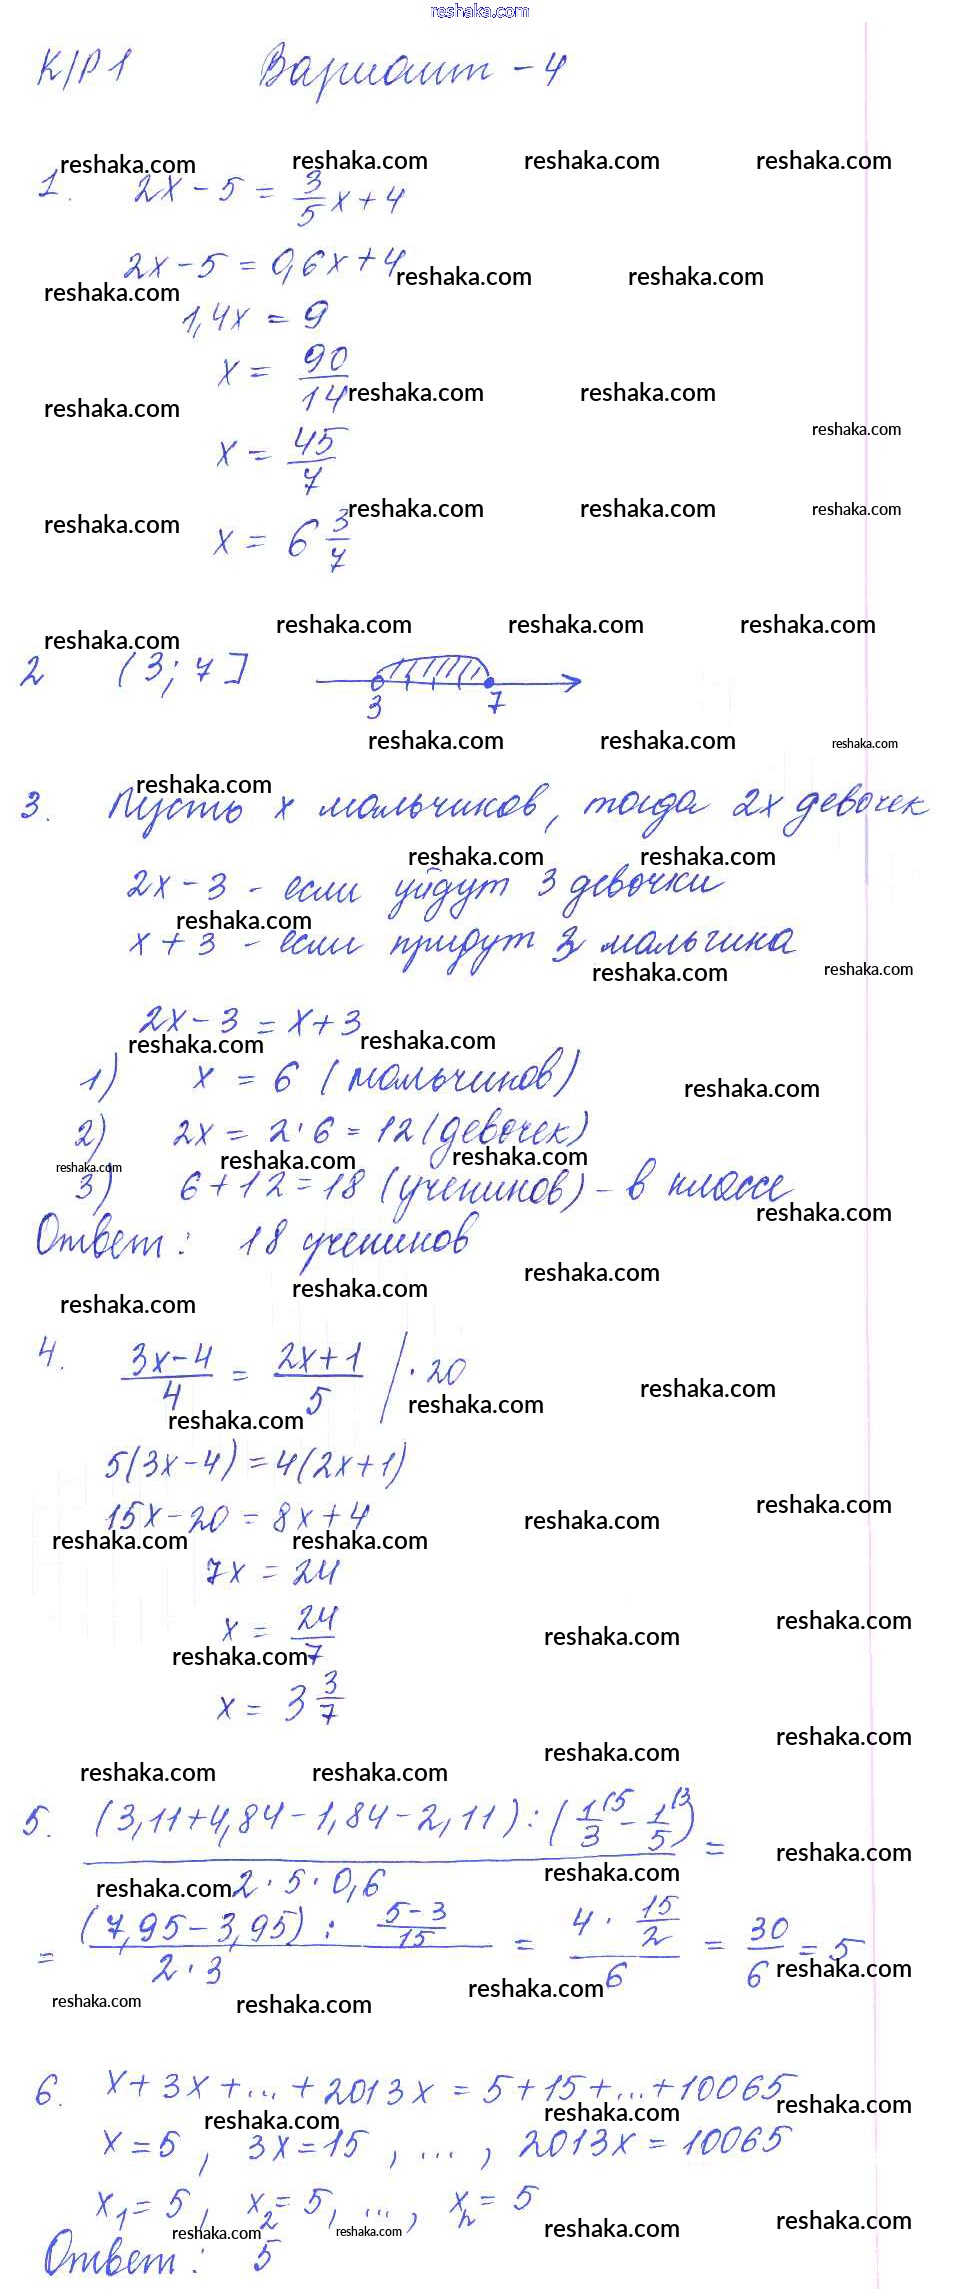 reshaka.com
К/Р 1 Вариант - 4
reshaka.com reshaka.com reshaka.com reshaka.com
1. 2x - 5 = 3/5 x + 4
2x - 5 = 0,6x + 4
reshaka.com reshaka.com reshaka.com
1,4x = 9
x = 90/14
reshaka.com reshaka.com reshaka.com
reshaka.com
x = 45/7
reshaka.com reshaka.com reshaka.com reshaka.com
x = 6 3/7
reshaka.com reshaka.com reshaka.com reshaka.com
2 (3; 7]
3 7
reshaka.com reshaka.com reshaka.com
reshaka.com
3. Пусть x мальчиков, тогда 2x девочек
reshaka.com reshaka.com
2x - 3 - если уйдут 3 девочки
reshaka.com
x + 3 - если придут 3 мальчика
reshaka.com reshaka.com
2x - 3 = x + 3
reshaka.com reshaka.com
1) x = 6 (мальчиков)
reshaka.com
2) 2x = 2 · 6 = 12 (девочек)
reshaka.com reshaka.com reshaka.com
3) 6 + 12 = 18 (учеников) - в классе
reshaka.com
Ответ: 18 учеников
reshaka.com reshaka.com reshaka.com
4. 3x-4/4 = 2x+1/5 / · 20
reshaka.com reshaka.com reshaka.com
5(3x-4) = 4(2x+1)
15x - 20 = 8x + 4
reshaka.com reshaka.com reshaka.com reshaka.com
7x = 24
x = 24/7
reshaka.com reshaka.com reshaka.com
x = 3 3/7
reshaka.com reshaka.com reshaka.com reshaka.com
5. (3,11+4,84-1,84-2,11) : (1/3 (5 - 1/5 (3) =
reshaka.com reshaka.com
reshaka.com 2 · 5 · 0,6
= (7,95-3,95) : 5-3/15 = 4 · 15/2 = 30/6 = 5
2 · 3 6
reshaka.com reshaka.com reshaka.com reshaka.com
6. x + 3x + ... + 2013x = 5 + 15 + ... + 10065
reshaka.com reshaka.com reshaka.com
x = 5, 3x = 15, ..., 2013x = 10065
x1 = 5, x2 = 5, ..., xn = 5
reshaka.com reshaka.com reshaka.com reshaka.com
Ответ: 5